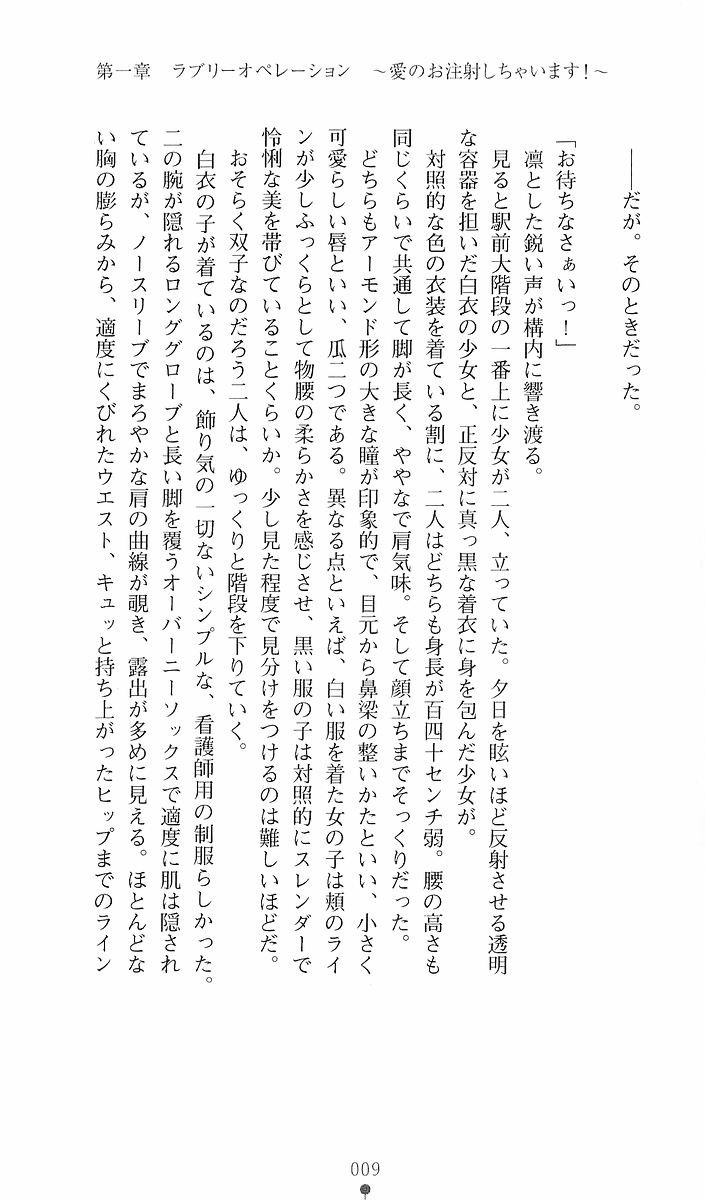 第一章　ラブリーオペレーション　～愛のお注射しちゃいます！～
――だが。そのときだった。
「お待ちなさぁいっ！」
凛とした鋭い声が構内に響き渡る。
見ると駅前大階段の一番上に少女が二人、立っていた。夕日を眩いほど反射させる透明
な容器を担いだ白衣の少女と、正反対に真っ黒な着衣に身を包んだ少女が。
対照的な色の衣装を着ている割に、二人はどちらも身長が百四十センチ弱。腰の高さも
同じくらいで共通して脚が長く、ややなで肩気味。そして顔立ちまでそっくりだった。
どちらもアーモンド形の大きな瞳が印象的で、目元から鼻梁の整いかたといい、小さく
可愛らしい唇といい、瓜二つである。異なる点といえば、白い服を着た女の子は頬のライ
ンが少しふっくらとして物腰の柔らかさを感じさせ、黒い服の子は対照的にスレンダーで
怜悧な美を帯びていることくらいか。少し見た程度で見分けをつけるのは難しいほどだ。
おそらく双子なのだろう二人は、ゆっくりと階段を下りていく。
白衣の子が着ているのは、飾り気の一切ないシンプルな、看護師用の制服らしかった。
二の腕が隠れるロンググローブと長い脚を覆うオーバーニーソックスで適度に肌は隠され
ているが、ノースリーブでまろやかな肩の曲線が覗き、露出が多めに見える。ほとんどな
い胸の膨らみから、適度にくびれたウエスト、キュッと持ち上がったヒップまでのライン
009